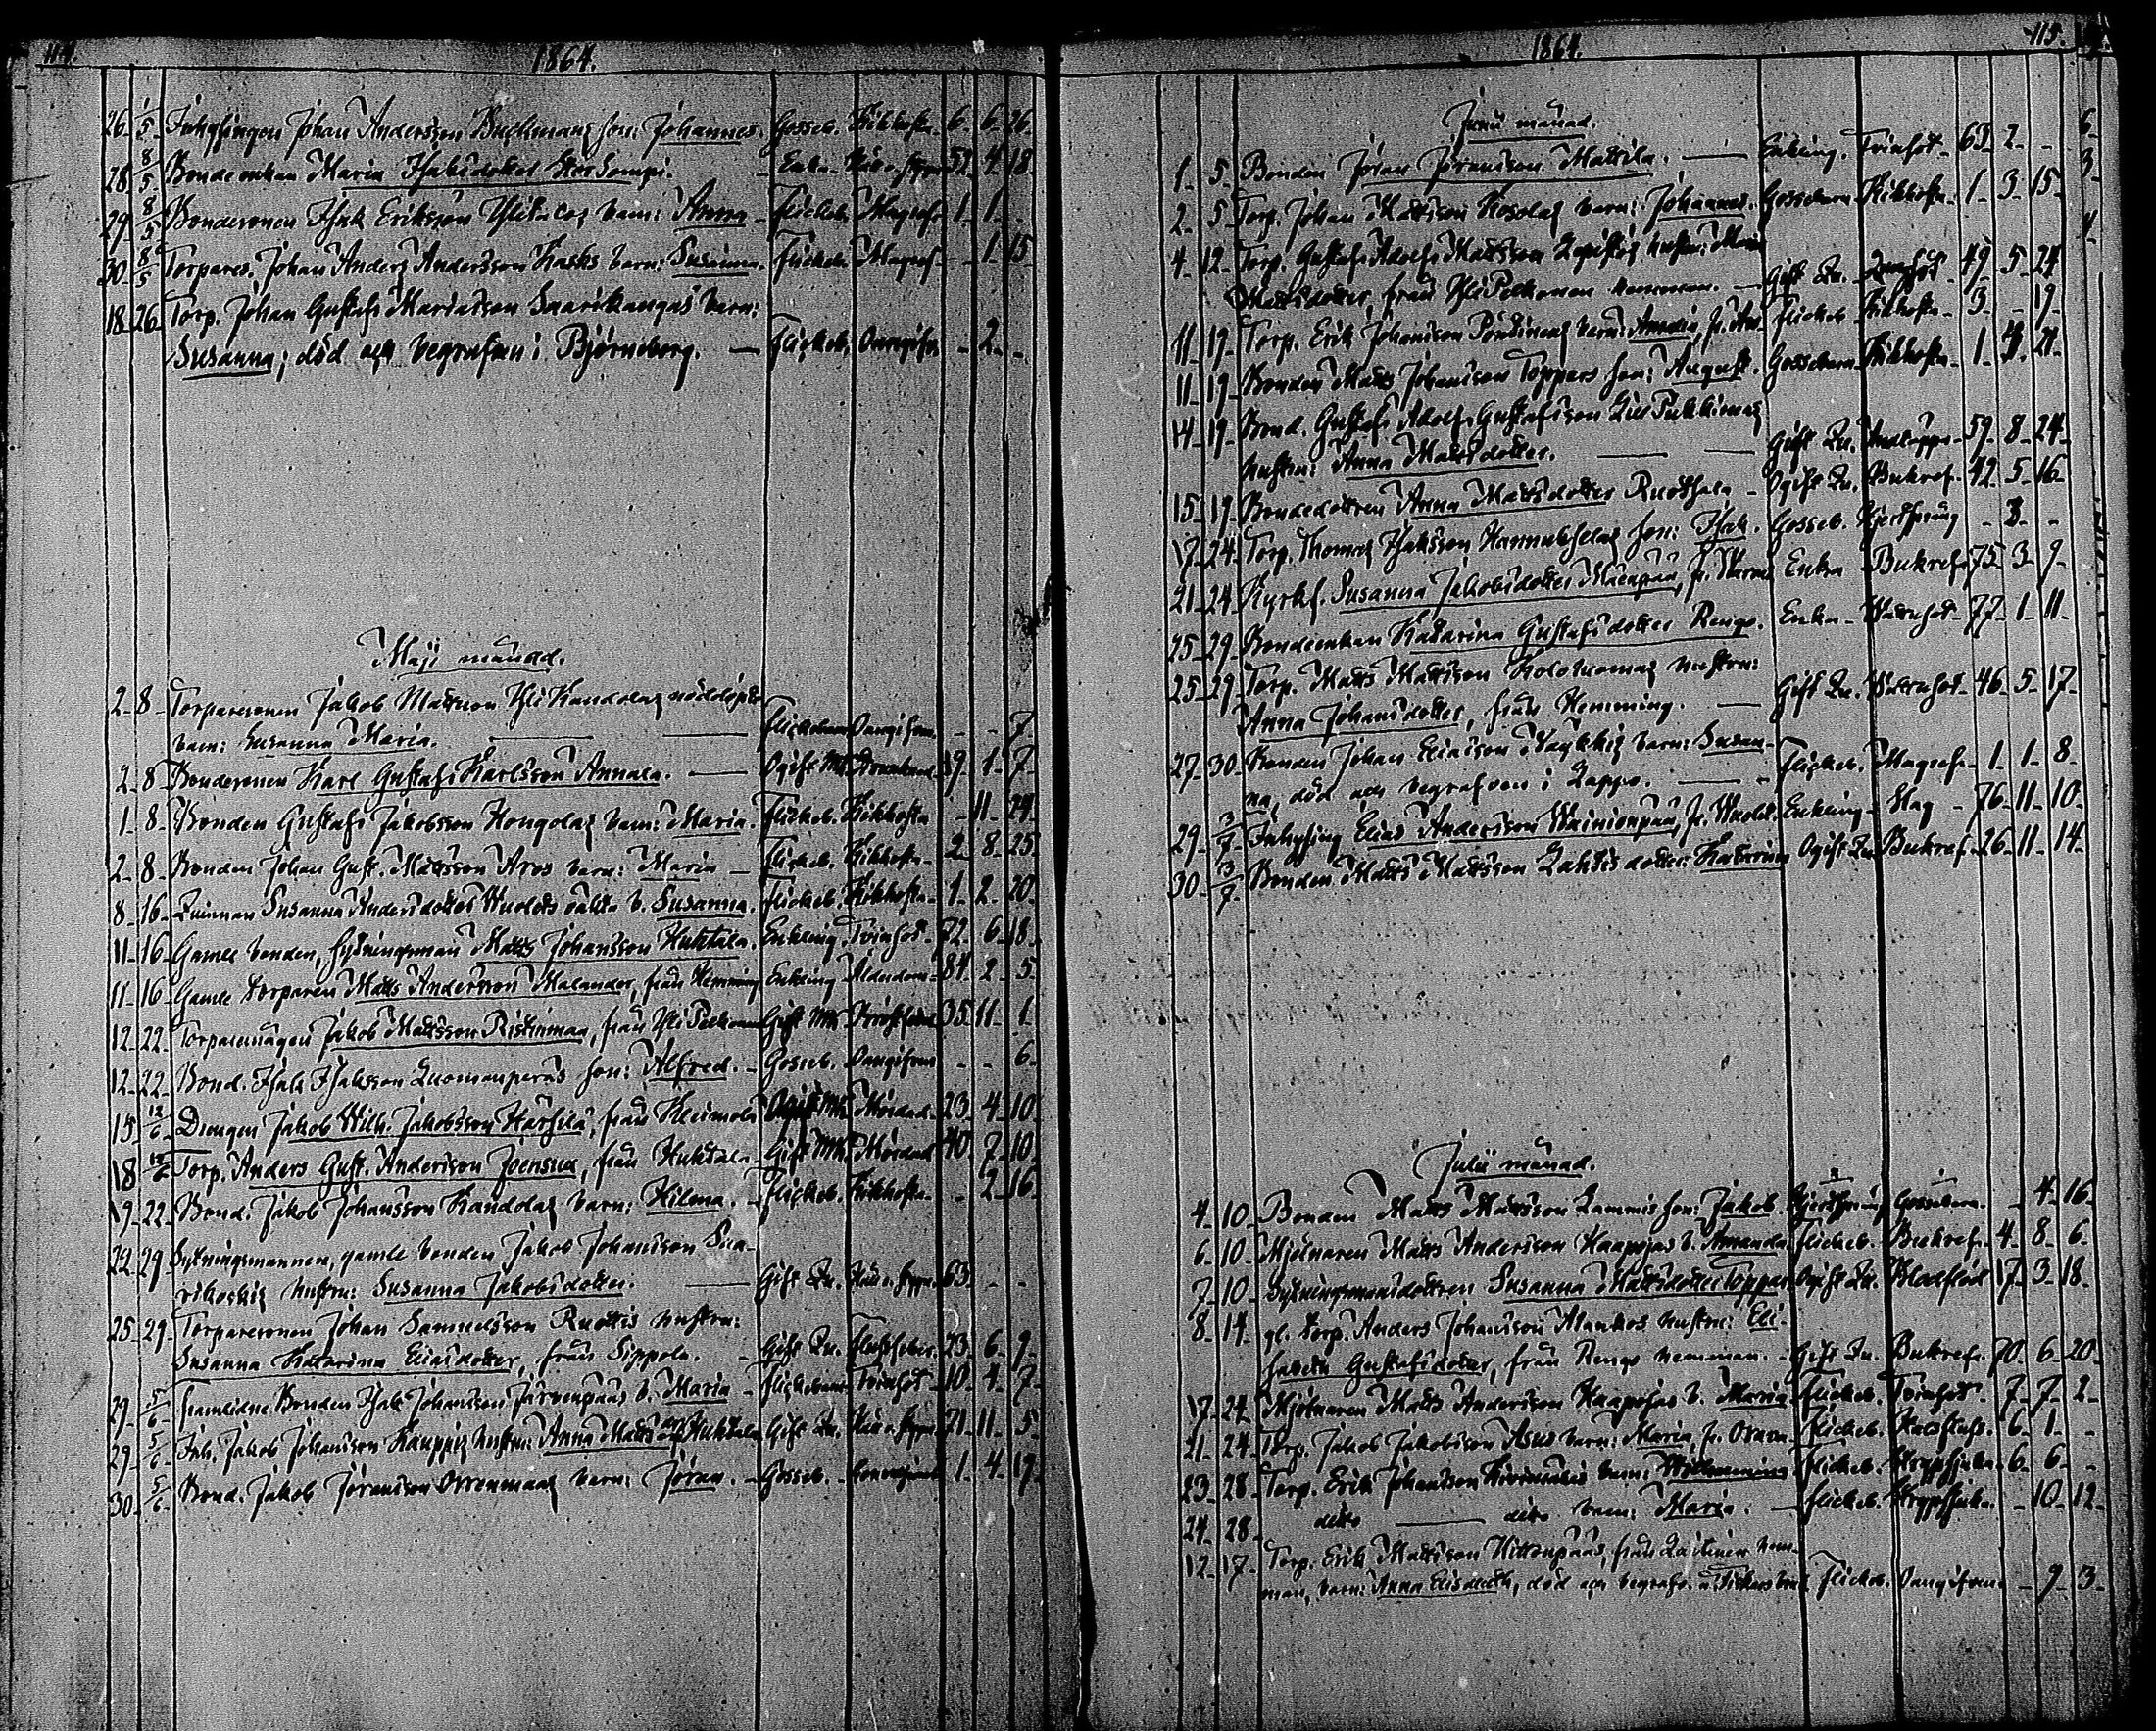 114.
1864.
26. 1/5 Inhysingen Johan Andersson Buckmans son: Johannes. Gosseb. Kikhosta. 6. 6. 26.
28. 8/5 Bondeenkan Maria Isaksdotter Enka. 52. 4. 18.
29. 8/5 Bondesonen Isak Eriksson barn: Anna Flickeb. Magref. 1. 1.
30. 8/5 Torpares. Johan Anders Andersson Kasks barn: Susanna. Flickeb. Magref. 1. 15.
18. 26. Torp. Johan Gustafs Mariasson Saarikangas barn:
Susanna; död och begrafven i Björneborg. Flickeb. Oangifven. 2.
Maji månad.
2. 8. Torparesonen Jakob Mattsson Yli Kandolas nöddöpta
barn: Susanna Maria. Flickebarn Oangifven. 7.
2. 8. Bondesonen Karl Gustafs Karlsson Annala. Ogift Mk. 19. 1. 7.
1. 8. Bonden Gustafs Jakobsson Hongolas barn: Maria. Flickeb. Kikhosta 11. 24.
2. 8. Bonden Johan Gust. Mattsson Aros barn: Maria Flickeb. Kikhosta. 2. 8. 25.
8. 16. Qvinnan Susanna Andersdotter oäkta b. Susanna. Flickeb. Kikhosta. 1. 2. 20.
11. 16. Gamle bonden, sytningsman Matts Johansson Huhtala. Enkling. Tvinsot. 72. 6. 18.
11. 16. Gamle torparen Matts Andersson Malander, från Hemming Enkling Ålderdom. 84. 2. 5.
12. 22. Torparemågen Jakob Mattsson Ristinmaa, från Yli Gift Mk. 35. 11. 1.
12. 22. Bond. Isak Isaksson Luomanperäs son: Alfred. Gosseb. Oangifven 6.
15. 12/6 Drengen Jakob Wilh. Jakobsson Harsila, från Heimola Ogift Mk. Mördad. 23. 4. 10.
18. 12/6 Torp. Anders Gust. Andersson Joensuu, från Huhtala. Gift Mk. Mördad 40. 7. 10.
19. 22. Bond. Jakob Johansson Kandolas barn: Hilma. Flickeb. Kikhosta. 2. 16.
22. 29. Sytningsmannen, gamle bonden Jakob Johansson Saa-
rikoskis hustru: Susanna Jakobsdotter. Gift Qv. 63.
25. 29. Torparesonen Johan Samuelsson Ruottis hustru:
Susanna Katarina Eliasdotter, från Sippola. Gift Qv. 23. 6. 9.
29. 5/6 framlidne Bonden Isak Johansson Järvenpääs b. Maria Flickebarn Tvinsot 10. 4. 7.
29. 5/6 Inh. Jakob Johansson Kauppis hustru: Anna Mattsdotter Huhtala Gift Qv. 71. 11. 5.
30. 5/6 Bond. Jakob Jöransson Orrenmaas barn: Jöran. Gosseb. 1. 4. 19.
1864.
115.
Junii månad.
1. 5. Bonden Jöran Jöransson Mattila. Enkling. Tvinsot. 63. 2.
2. 5. Torp. Johan Mattsson barn: Johannes. Gossebarn Kikhosta. 1. 3. 15.
4. 12. Torp. Gustafs Adolfs Mattsson hustru: Maria
Mattsdotter, från Yli hemman. Gift Qv. 49. 5. 24.
11. 19. Torp. Erik Johansson barn: Amanda, fr. Flickeb. Kikhosta. 3. 19.
11. 19. Bonden Matts Johansson Toppars son: August. Gossebarn Kikhosta. 1. 4. 21.
14. 19. Bond. Gustafs Adolfs Gustafsson
hustru: Anna Mattsdotter. Gift Qv. 59. 8. 24.
15. 19. Bondedottren Anna Mattsdotter Ruotsala Ogift Qv. Bukref. 42. 5. 16.
17. 24. Torp. Thomas Isaksson Hannukselas son: Isak. Gosseb. 3.
21. 24. Kyrkf. Susanna Jakobsdotter Mäenpää, fr. Enka Bukref. 75. 3. 9.
25. 29. Bondeenkan Katarina Gustafsdotter Rengo. Enka Vattusot. 77. 1. 11.
25. 29. Torp. Matts Mattsson hustru:
Anna Johansdotter, från Hemming. Gift Qv. Vattusot. 46. 5. 17.
27. 30. Bonden Johan Eliasson barn: Susan-
na, död och begrafven i Lappo. Flickeb. Magref. 1. 1. 8.
29. 3/7 Inhysing Elias Andersson Wainionpää, fr. Enkling 76. 11. 10.
30. 13/7 Bonden Matts Mattsson Lahtis dotter: Katarina Ogift Qv. Bukref. 26. 11. 14.
Julii månad.
4. 10. Bonden Matts Mattsson Lammis son: Jakob. Gossebarn. 4. 16.
6. 10. Mjölnaren Matts Andersson Haapojas b. Amanda Flickeb. Bukref. 4. 8. 6.
7. 10. Sytningsmansdottren Susanna Mattsdotter Toppar Ogift Qv. Blodflöd 17. 3. 18.
8. 14. gl. torp. Anders Johansson hustru: Eli-
sabeth Gustafsdotter, från Rengo hemman. Gift Qv. Bukref. 70. 6. 20.
17. 24. Mjölnaren Matts Andersson Haapojas b. Maria Flickeb. Tvinsot. 7. 7. 2.
21. 24. Torp. Jakob Jakobsson Asus barn: Maria, fr. Orava Flickeb. 6. 1.
23. 28. Torp. Erik Johansson barn: Wilhelmina Flickeb. Strypsjuka. 6. 6.
24. 28. dito dito barn: Maria. Flickeb. Strypsjuka. 10. 12.
12. 17. Torp. Erik Mattsson från hem-
man, barn: Anna Elisabeth, död och begrafv. Flickeb. Oangifven. 9. 3.